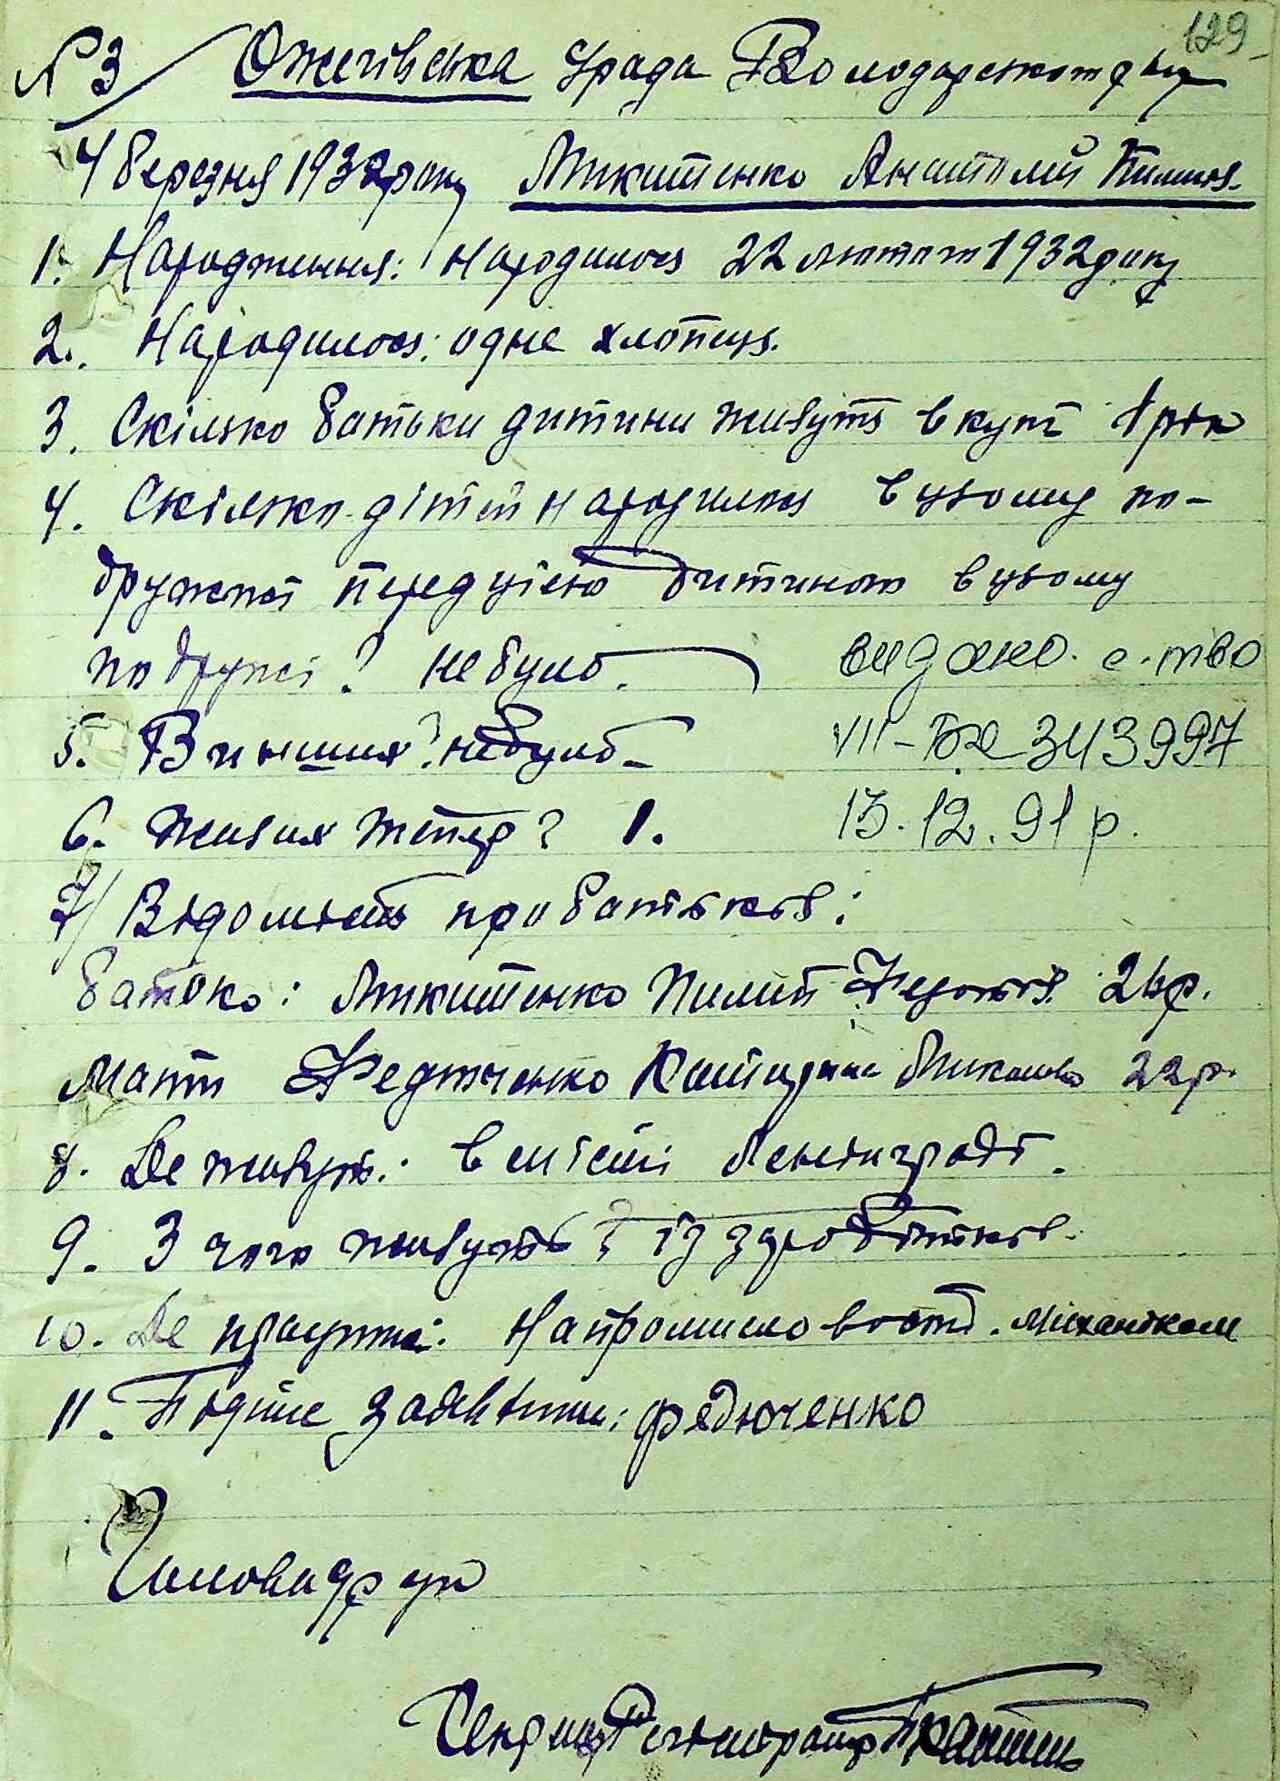 129
№ 3 Ожегівська с/рада Володарського р-ну
4 березня 1932 року Микитенко Анатолій Пилип.
1. Народження: Народилося 22 лютого 1932 року
2. Народилося: одне хлопець.
3. Скілько батьки дитини живуть вкупі 1 рік
4. Скілько дітей народилось в цьому по-
дружжі перед цією дитиною в цьому
подружжі? не було. видано. с-тво
5. В інших? не було VII-БК 343997
6. Живих тепер? 1. 13.12.91 р.
7) Відомість про батьків:
батько: Микитенко Пилип 26 р.
Мати Федюченко Катерина Миколаєв 22 р.
8. Де живуть: в місті Ленінграді.
9. З чого живуть? із заробітків.
10. Де працює: На промисловості. Механіком
11. Підпис заявітеля: Федюченко
Голова с/р
Секретар Реєстратор